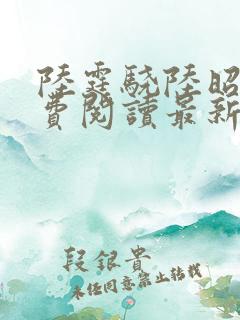 陸霆驍陸昭
費閱讀最新
段銀貴
未經同意禁止轉載